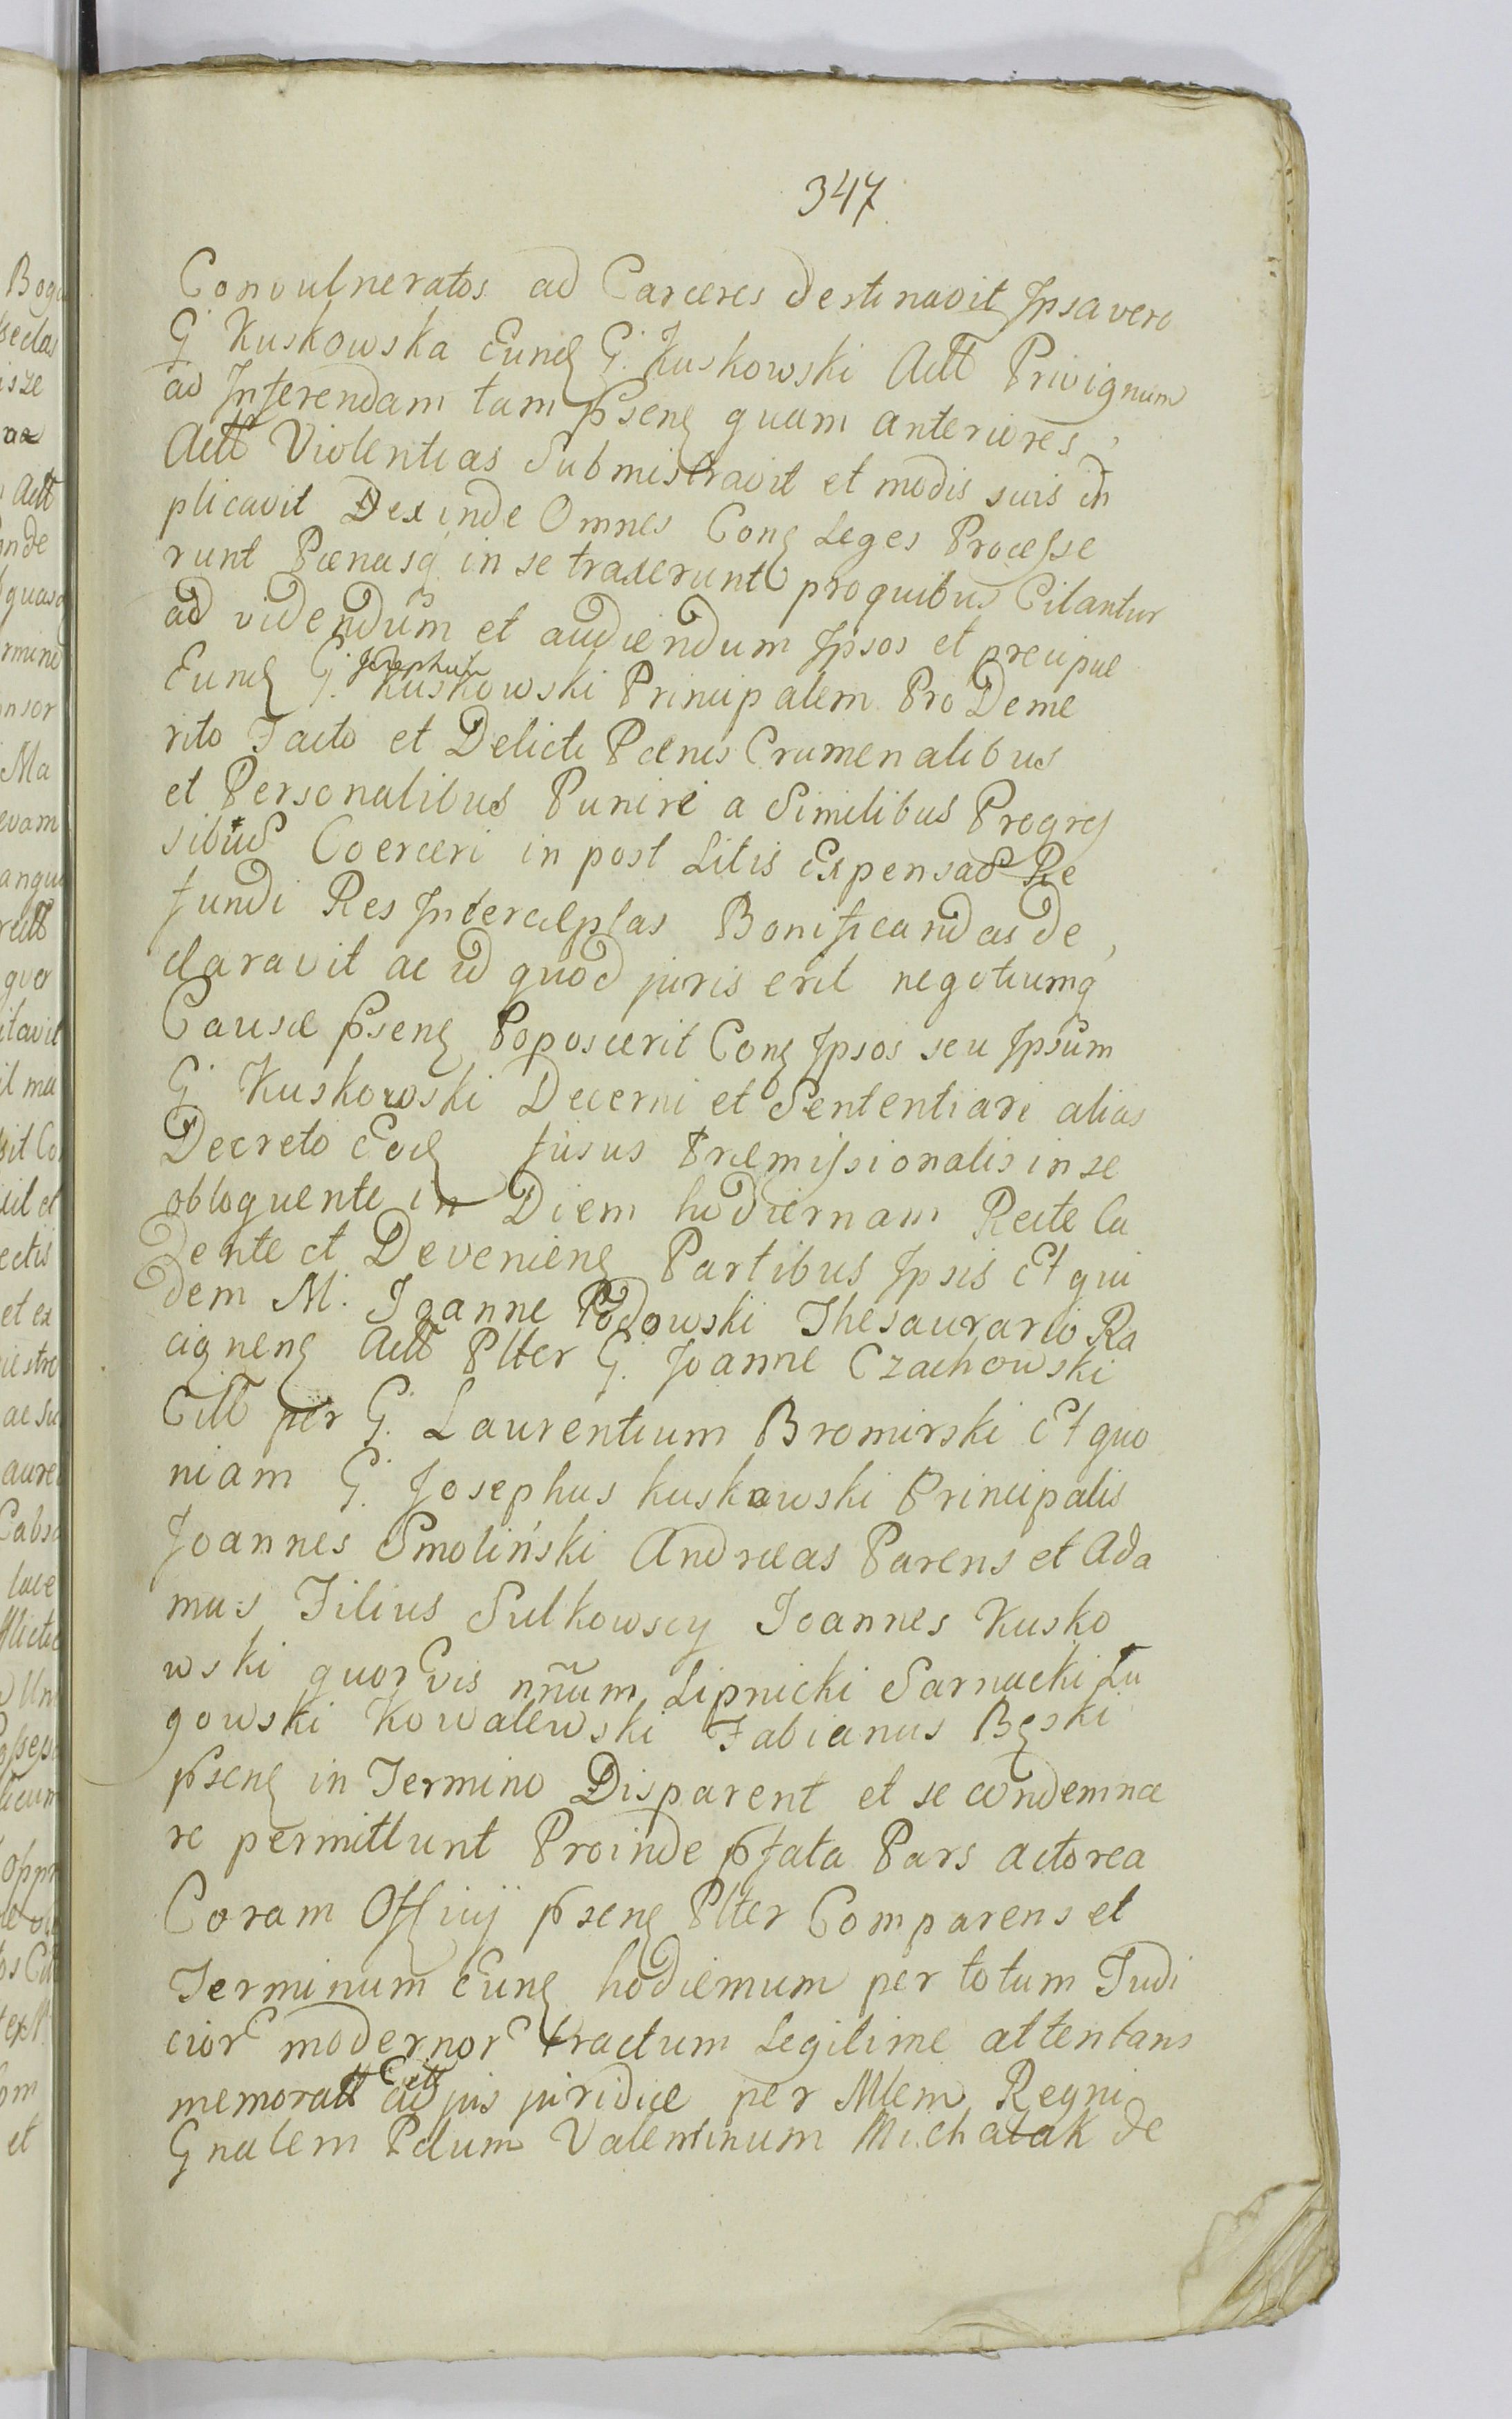 347
Convulneratos ad Carceres destinavit Ipsa vero
G Kuskowska Eund G. Kuskowski Actt Privignum
ad Inferendam tam pseng quam anteriores,
Actt Violentias Submistravit et modis suis in
plicavit Dexinde Omnes Cong Leges Processe
runt Pænasq in se traxerunt pro quibus Citantur
ad videndum et audiendum Ipsos et precipue
Eund G. Josephum Kuskowski Principalem Pro Deme
rito Facto et Delicti Pænis Crumenalibus
et Personalibus Puniri a Similibus Progres
sibus Coerceri in post Litis Expensas Re
fundi Res Interceptas Bonificandas de,
claravit ac id quod juris erit negotiumq
Causæ pseng Poposcerit Cong Ipsos seu Ipsum
G Kuskowski Decerni et Sententiari alias
Decreto Eod fusus Præmissionalis in se
obloquente in Diem hodiernam Recte Ca
dente et Devenieng Partibus Ipsis Et qui
dem M. Joanne Rodowski Thesaurario Ra
cigneng Actt Plter G. Joanne Czachowski
Citt per G. Laurentium Bromirski Et quo
niam G. Josephus Kuskowski Principalis
Joannes Smoliński Andreas Parens et Ada
mus Filius Sulkowscy Joannes Kusko
wski quorvis nnum Lipnicki Sarnacki Łu
gowski Kowalewski Fabianus Bęski
pseng in Termino Disparent et se condemna
re permittunt Proinde pfata Pars actorea
Coram Officij pseng Plter Comparens et
Terminum Eung hodiernum per totum Judi
cior modernor tractum Legitime attentans
memoratt Citt ad jus juridice per Mlem Regni
Gnalem Pdum Valentinum Michalak de